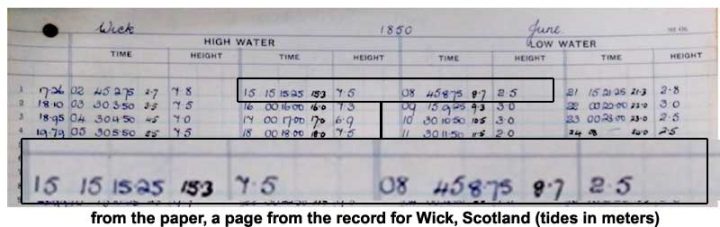 Wick 1850 June
HIGH WATER LOW WATER
TIME HEIGHT TIME HEIGHT TIME HEIGHT TIME HEIGHT
1 17.26 02 45 2.75 2.7 7.8 15 15 15.25 15.3 7.5 08 45 8.75 8.7 2.5 21 15 21.25 21.3 2.8
2 18.10 03 30 3.50 3.5 7.5 16 00 16.00 16.0 7.3 09 15 9.25 9.3 3.0 22 00 22.00 22.0 3.0
3 18.95 04 30 4.50 4.5 7.0 17 00 17.00 17.0 6.9 10 30 10.50 10.5 3.0 23 00 23.00 23.0 2.5
4 19.79 05 30 5.50 5.5 7.5 18 00 18.00 18.0 7.5 11 30 11.50 11.5 2.0 24.0 2.5
15 15 15.25 15.3 7.5 08 45 8.75 8.7 2.5
from the paper, a page from the record for Wick, Scotland (tides in meters)